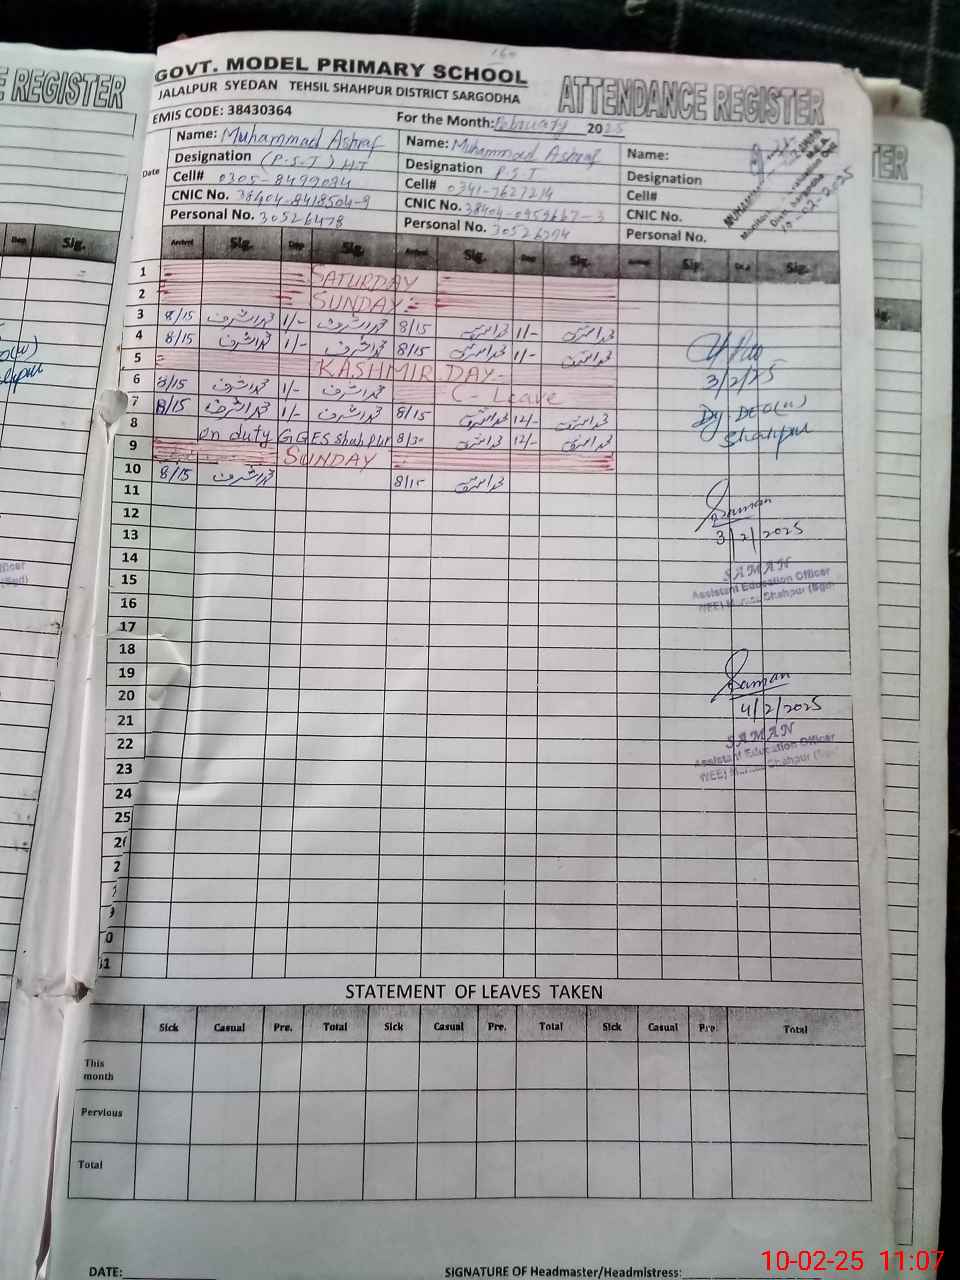 E REGISTER
GOVT. MODEL PRIMARY SCHOOL
JALALPUR SYEDAN TEHSIL SHAHPUR DISTRICT SARGODHA
ATTENDANCE REGISTER
EMIS CODE: 38430364
For the Month: February 2025
Name: Muhammad Ashraf Name: Muhammad Ashraf Name:
Designation (P.S.T) HT Designation P.S.T Designation
Cell# 0305-8499094 Cell# 0341-7627214 Cell#
CNIC No. 38404-8418504-9 CNIC No. 38404-0959667-3 CNIC No.
Personal No. 30526478 Personal No. 30526294 Personal No.
Date Arrival Sig. Dep Sig. Arrival Sig. Dep Sig. Sig. Sig.
1 SATURDAY
2 SUNDAY
3 8/15 محمد اشرف 1/- محمد اشرف 8/15 1/-
4 8/15 محمد اشرف 1/- محمد اشرف 8/15 1/-
5 KASHMIR DAY
6 8/15 محمد اشرف 1/- محمد اشرف C- Leave
7 8/15 محمد اشرف 1/- محمد اشرف 8/15 12/-
8 on duty GGES Shahpur 8/30 12/-
9 SUNDAY
10 8/15 محمد اشرف 8/15
11
12
13
14
15
16
17
18
19
20
21
22
23
24
25
3/2/25
Dy. DEO(W)
Shahpur
Saman
3/2/2025
SAMAN
Assistant Education Officer
Saman
4/2/2025
SAMAN
Assistant Education Officer
STATEMENT OF LEAVES TAKEN
Sick Casual Pre. Total Sick Casual Pre. Total Sick Casual Pre. Total
This month
Pervious
Total
DATE: SIGNATURE OF Headmaster/Headmistress:
10-02-25 11:07